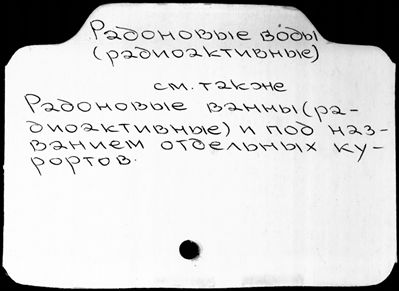 Радоновые воды
(радиоактивные)
см. также
Радоновые ванны (ра-
диоактивные) и под наз-
ванием отдельных ку-
рортов.